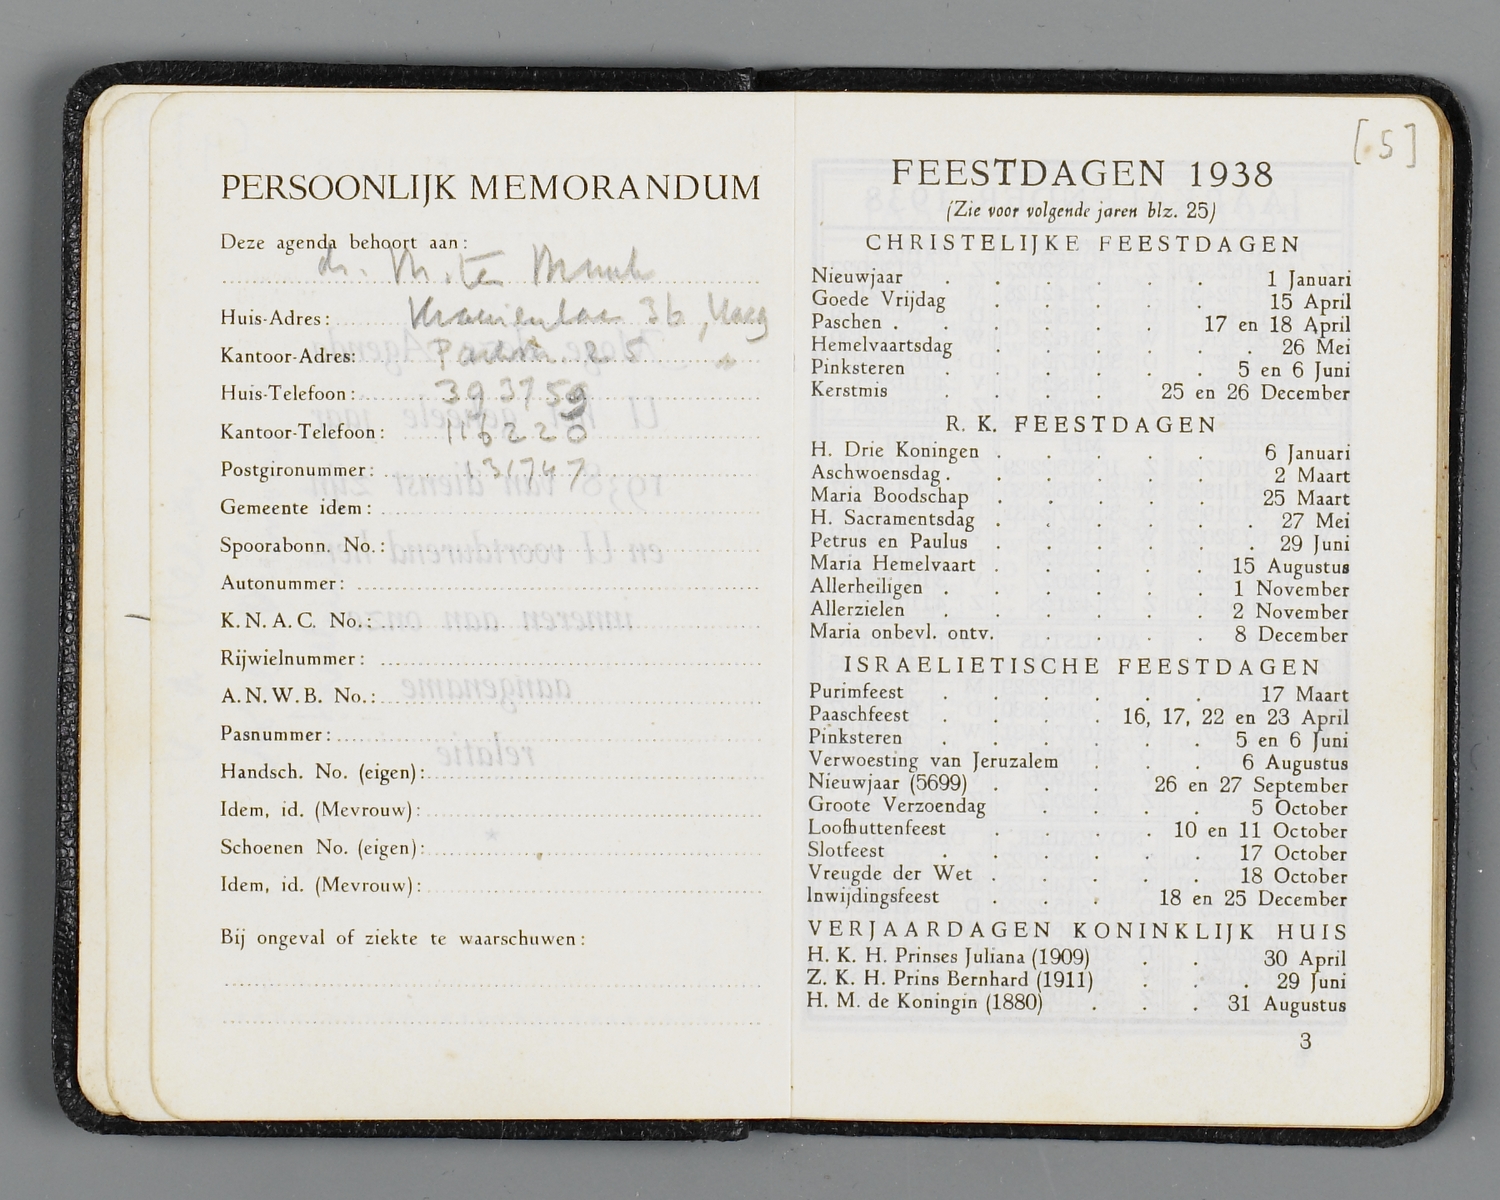 PERSOONLIJK MEMORANDUM
Deze agenda behoort aan:
dr.
Huis-Adres: 36, Haag
Kantoor-Adres: 25 "
Huis-Telefoon: 393759
Kantoor-Telefoon: 116220
Postgironummer: 131747
Gemeente idem:
Spoorabonn. No.:
Autonummer:
K.N.A.C. No.:
Rijwielnummer:
A.N.W.B. No.:
Pasnummer:
Handsch. No. (eigen):
Idem, id. (Mevrouw):
Schoenen No. (eigen):
Idem, id. (Mevrouw):
Bij ongeval of ziekte te waarschuwen:
[5]
FEESTDAGEN 1938
(Zie voor volgende jaren blz. 25)
CHRISTELIJKE FEESTDAGEN
Nieuwjaar . . . . . . 1 Januari
Goede Vrijdag . . . . . . 15 April
Paschen . . . . . . 17 en 18 April
Hemelvaartsdag . . . . . . 26 Mei
Pinksteren . . . . . . 5 en 6 Juni
Kerstmis . . . . 25 en 26 December
R. K. FEESTDAGEN
H. Drie Koningen . . . . . 6 Januari
Aschwoensdag . . . . . . 2 Maart
Maria Boodschap . . . . . 25 Maart
H. Sacramentsdag . . . . . . 27 Mei
Petrus en Paulus . . . . . . 29 Juni
Maria Hemelvaart . . . . . 15 Augustus
Allerheiligen . . . . . . 1 November
Allerzielen . . . . . . 2 November
Maria onbevl. ontv. . . . 8 December
ISRAELIETISCHE FEESTDAGEN
Purimfeest . . . . . . 17 Maart
Paaschfeest . . . . 16, 17, 22 en 23 April
Pinksteren . . . . . . 5 en 6 Juni
Verwoesting van Jeruzalem . . 6 Augustus
Nieuwjaar (5699) . . . 26 en 27 September
Groote Verzoendag . . . . 5 October
Loofhuttenfeest . . . . 10 en 11 October
Slotfeest . . . . . . 17 October
Vreugde der Wet . . . . . 18 October
Inwijdingsfeest . . . 18 en 25 December
VERJAARDAGEN KONINKLIJK HUIS
H. K. H. Prinses Juliana (1909) . . 30 April
Z. K. H. Prins Bernhard (1911) . . . 29 Juni
H. M. de Koningin (1880) . . . 31 Augustus
3